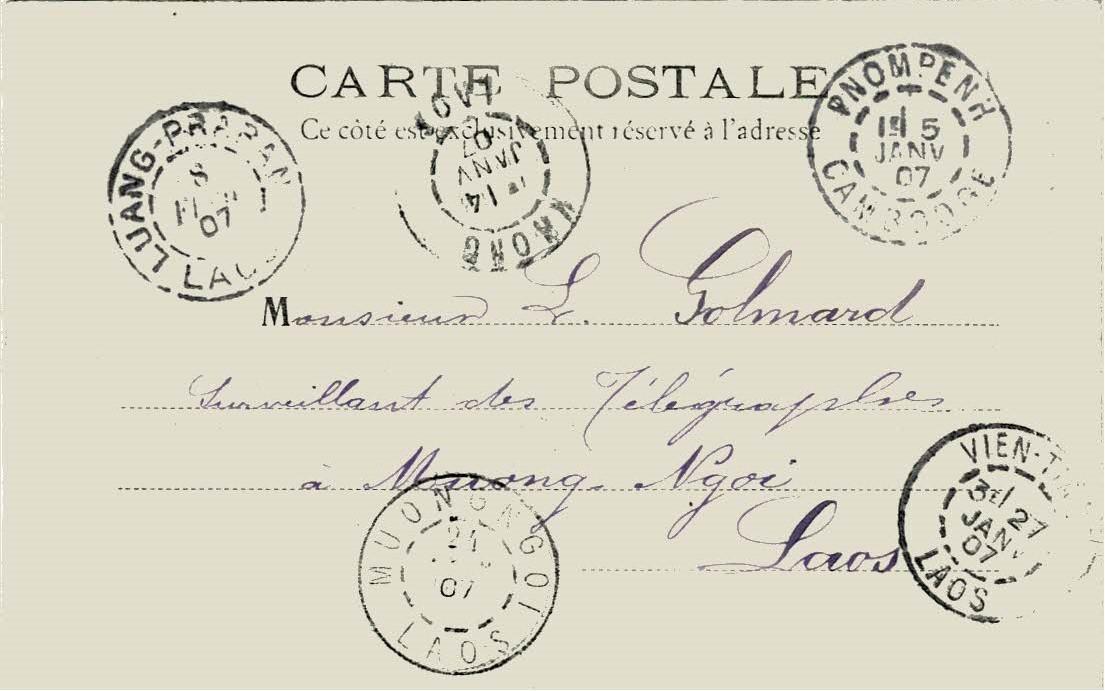 CARTE POSTALE
Ce côté est exclusivement réservé à l'adresse
PNOMPENH
5
JANV
07
CAMBODGE
LUANG-PRABAN
8
07
LAOS
14
JANV
07
Monsieur L. Golmard
Surveillant des Télégraphes
à Muong Ngoi
Laos
VIEN-T
27
JANV
07
LAOS
MUONG NGOI
21
07
LAOS